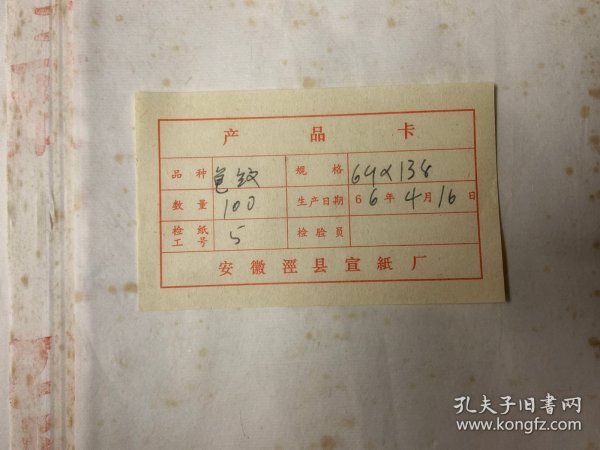 产品卡
品种 色纹 规格 64×138
数量 100 生产日期 66年4月16日
检纸工号 5 检验员
安徽泾县宣紙厂
孔夫子旧書网
www.kongfz.com